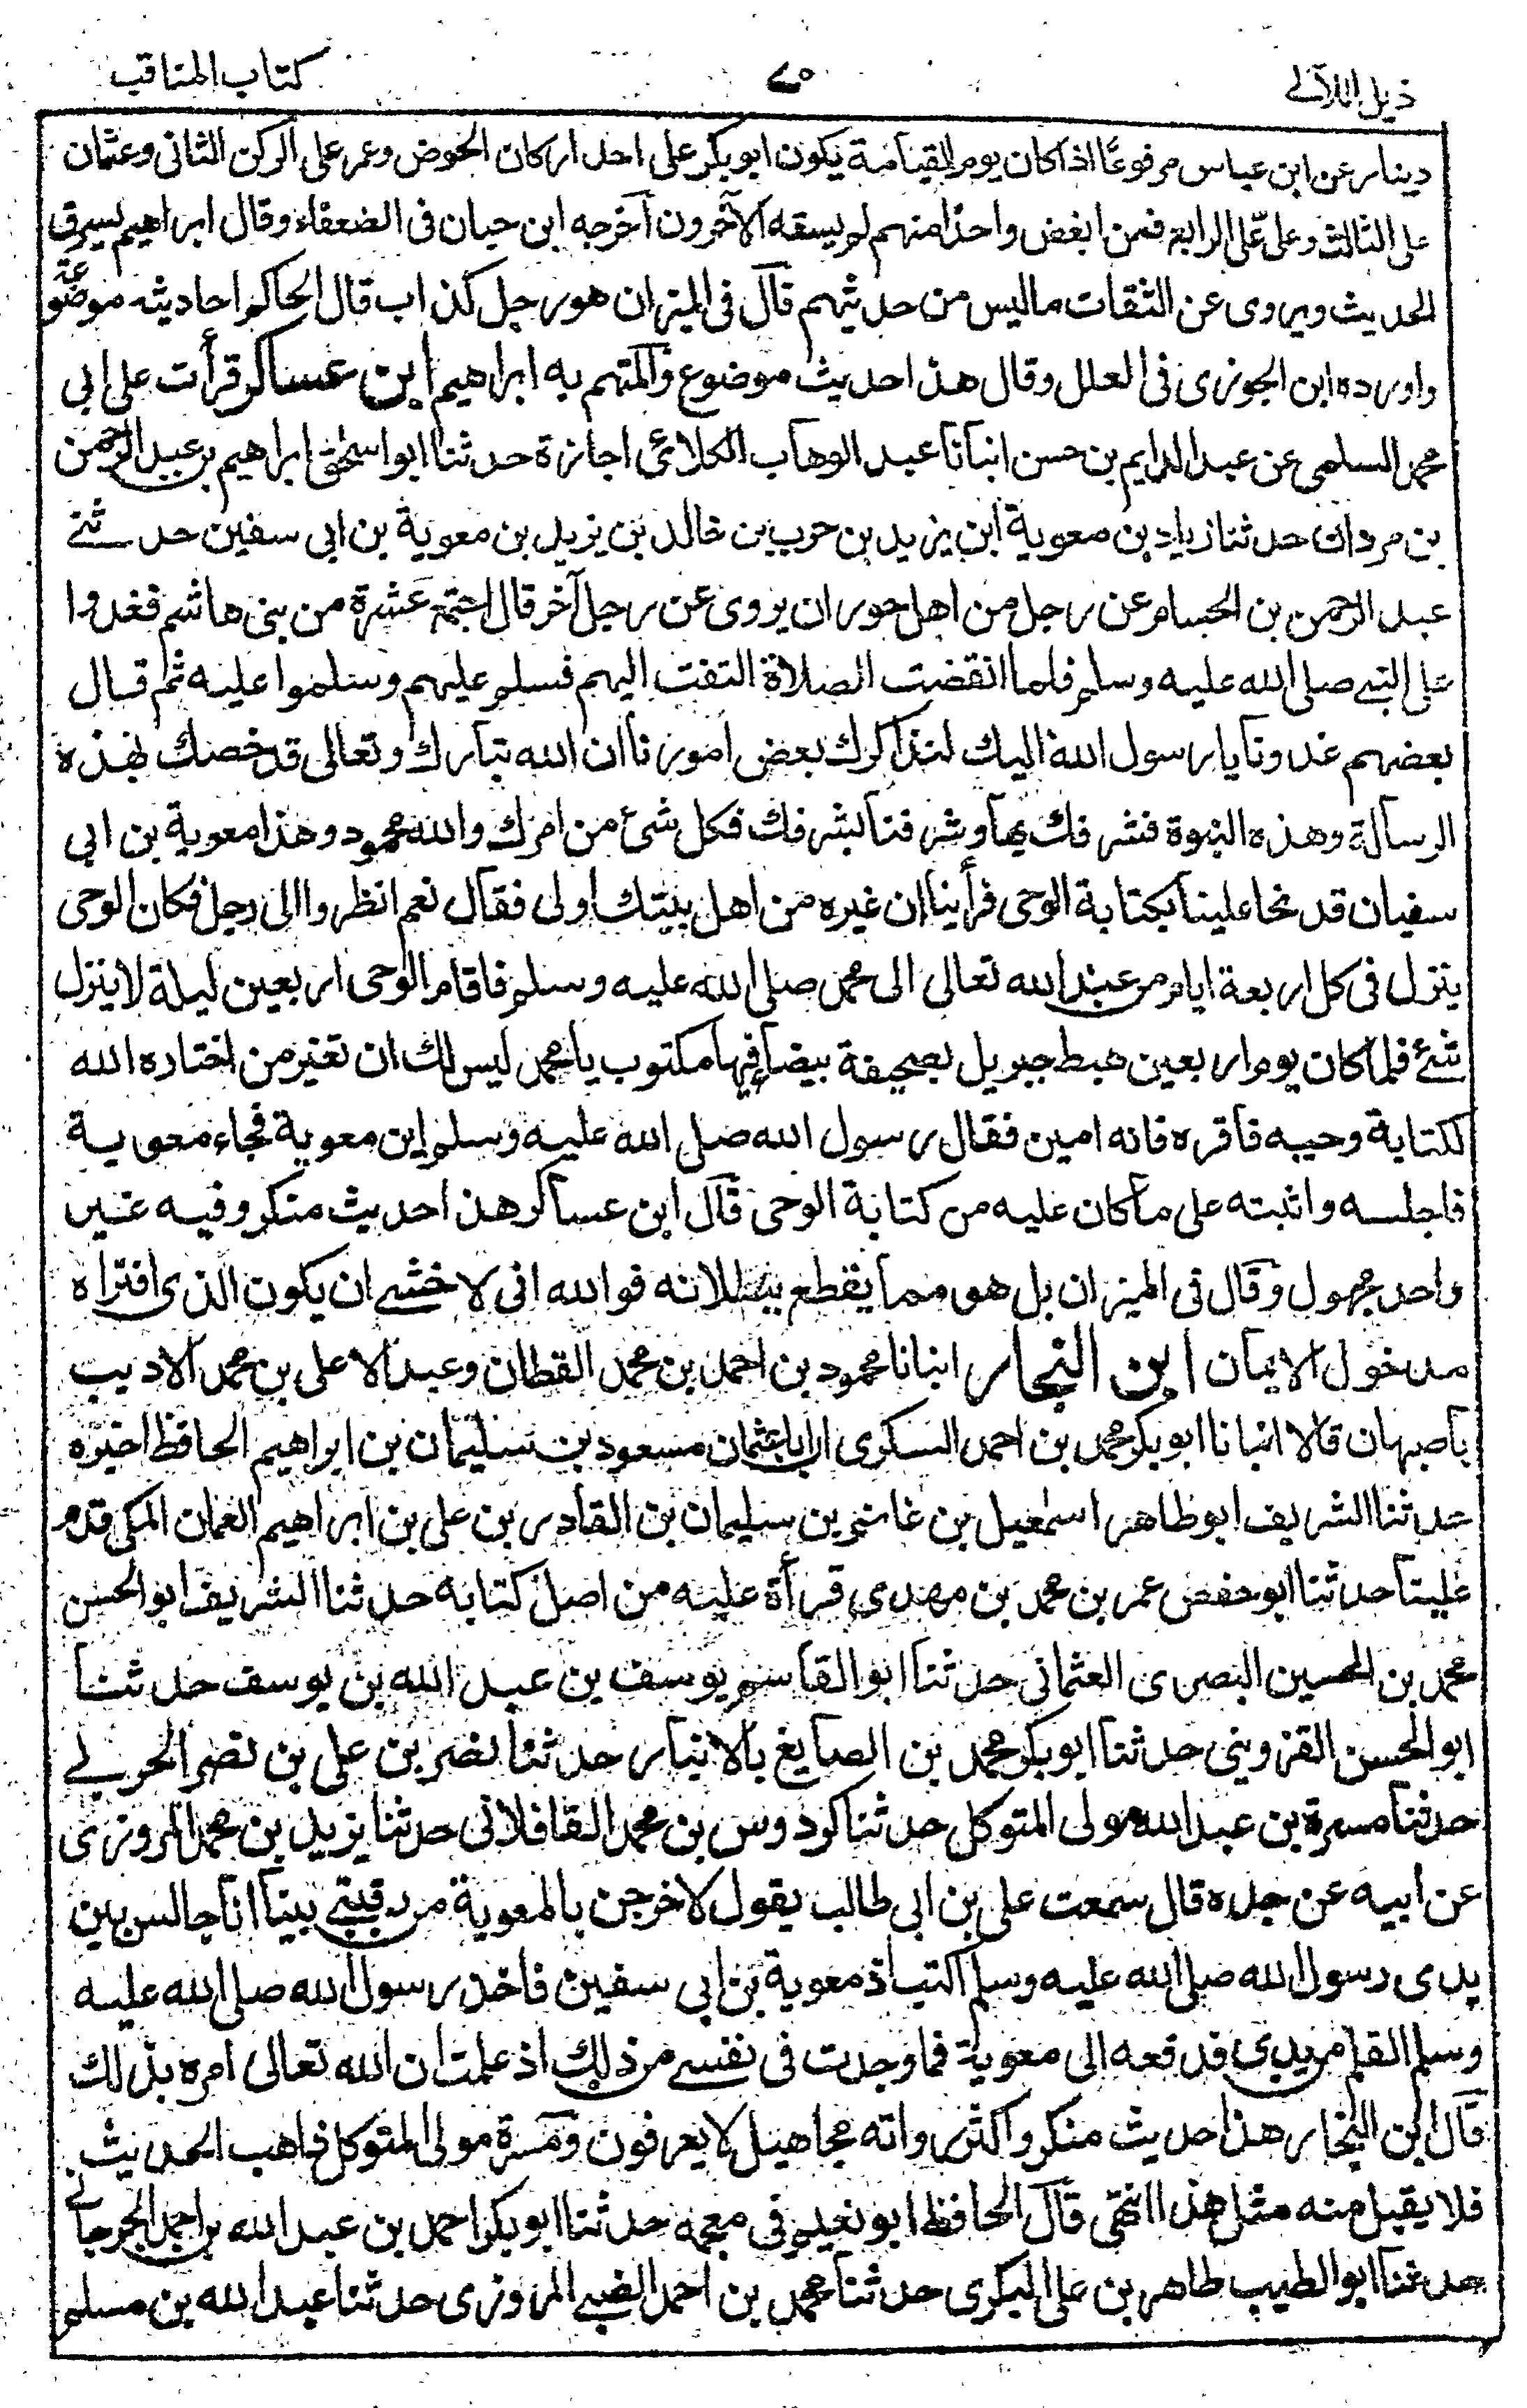 ذيل اللآلے ٧٥ كتاب المناقب
دينار عن ابن عباس مرفوعًا اذا كان يوم القيامة يكون ابو بكر على احد اركان الحوض وعمر على الركن الثانى وعثمان
على الثالث وعلى على الرابع فمن ابغض واحدًا منهم لم يسقه الآخرون أخرجه ابن حبان فى الضعفاء وقال ابراهيم يسرق
الحديث ويروى عن الثقات ما ليس من حديثهم قال فى الميزان هو رجل كذاب قال الحاكم احاديثه موضوعة
واورده ابن الجوزى فى العلل وقال هذا حديث موضوع والمتهم به ابراهيم ابن عساكر قرأت على ابى
محمد السلمى عن عبد الدايم بن حسن انبأنا عبد الوهاب الكلائى اجازة حدثنا ابو اسحٰق ابراهيم بن عبد الرحمن
بن مردان حدثنا زياد بن معوية ابن يزيد بن حرب بن خالد بن يزيد بن معوية بن ابى سفين حدثنے
عبد الرحمن بن الحسام عن رجل من اهل حوران يروى عن رجل آخر قال اجتمع عشرة من بنى هاشم فغدوا
على النبے صلى الله عليه وسلم فلما انقضت الصلاة التفت اليهم فسلم عليهم وسلموا عليه ثم قال
بعضهم غدونا يا رسول الله اليك لنذاكرك بعض امورنا ان الله تبارك وتعالى قد خصك بهذه
الرسالة وهذه النبوة فشرفك بها وشرفنا بشرفك فكل شئ من امرك والله محمود وهذا معوية بن ابى
سفيان قد نحا علينا بكتابة الوحى فرأينا ان غيره من اهل بيتك اولى فقال نعم انظروا الى رجل فكان الوحى
ينزل فى كل اربعة ايام من عند الله تعالى الى محمد صلى الله عليه وسلم فاقام الوحى اربعين ليلة لا ينزل
شئے فلما كان يوم اربعين هبط جبريل بصحيفة بيضا فيها مكتوب يا محمد ليس لك ان تغير من اختاره الله
لكتابة وحيه فاقره فانه امين فقال رسول الله صلى الله عليه وسلم اين معوية فجاء معوية
فاجلسه واثبته على ما كان عليه من كتابة الوحى قال ابن عساكر هذا حديث منكر وفيه غير
واحد مجهول وقال فى الميزان بل هو مما يقطع ببطلانه فوالله انى لاخشے ان يكون الذى افتراه
مدخول الايمان ابن النجار انبانا محمود بن احمد بن محمد القطان وعبد الاعلى بن محمد الاديب
باصبهان قالا انبانا ابو بكر محمد بن احمد السكرى ان اباعثمان مسعود بن سليمان بن ابراهيم الحافظ اخبره
حدثنا الشريف ابو طاهر اسمٰعيل بن غانم بن سليمان بن القادر بن على بن ابراهيم العمان المكى قدم
علينا حدثنا ابو حفص عمر بن محمد بن مهدى قرأة عليه من اصل كتابه حدثنا الشريف ابو الحسن
محمد بن الحسين البصرى العثمانى حدثنا ابو القاسم يوسف بن عبد الله بن يوسف حدثنا
ابو الحسن القزوينى حدثنا ابو بكر محمد بن الصايغ بالانبار حدثنا نصر بن على بن نصر الحربے
حدثنا مسرة بن عبد الله مولى المتوكل حدثنا كردوس بن محمد القافلانى حدثنا يزيد بن محمد المروزى
عن ابيه عن جده قال سمعت على بن ابى طالب يقول لاخرجن بالمعوية من رقبتے بينا انا جالس بين
يدى رسول الله صلى الله عليه وسلم اكتب اذ معوية بن ابى سفين فاخذ رسول الله صلى الله عليه
وسلم القلم من يدى فدفعه الى معوية فما وجدت فى نفسے من ذلك اذ علمت ان الله تعالى امره بذلك
قال ابن النجار هذا حديث منكر واكثر رواته مجاهيل لا يعرفون ومسرة مولى المتوكل ذاهب الحديث
فلا يقبل منه مثل هذا انتهى قال الحافظ ابو نعيم فى معجمه حدثنا ابو بكر احمد بن عبد الله بن احمد الجرجانے
حدثنا ابو الطيب طاهر بن على البكرى حدثنا محمد بن احمد الضبے المروزى حدثنا عبد الله بن مسلم